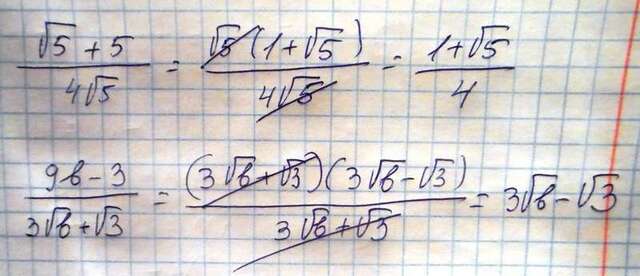 (√5 + 5)/(4√5) = (√5(1+√5))/(4√5) = (1+√5)/4
(9b-3)/(3√b+√3) = ((3√b+√3)(3√b-√3))/(3√b+√3) = 3√b-√3